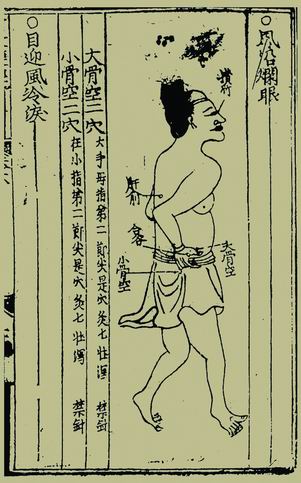 ○風沿爛眼
攢竹
肝俞
合谷
大骨空
小骨空
大骨空二穴 在手母指第二節尖是穴灸七壯瀉 禁針
小骨空二穴 在小指第二節尖是穴灸七壯瀉 禁針
○目迎風冷淚